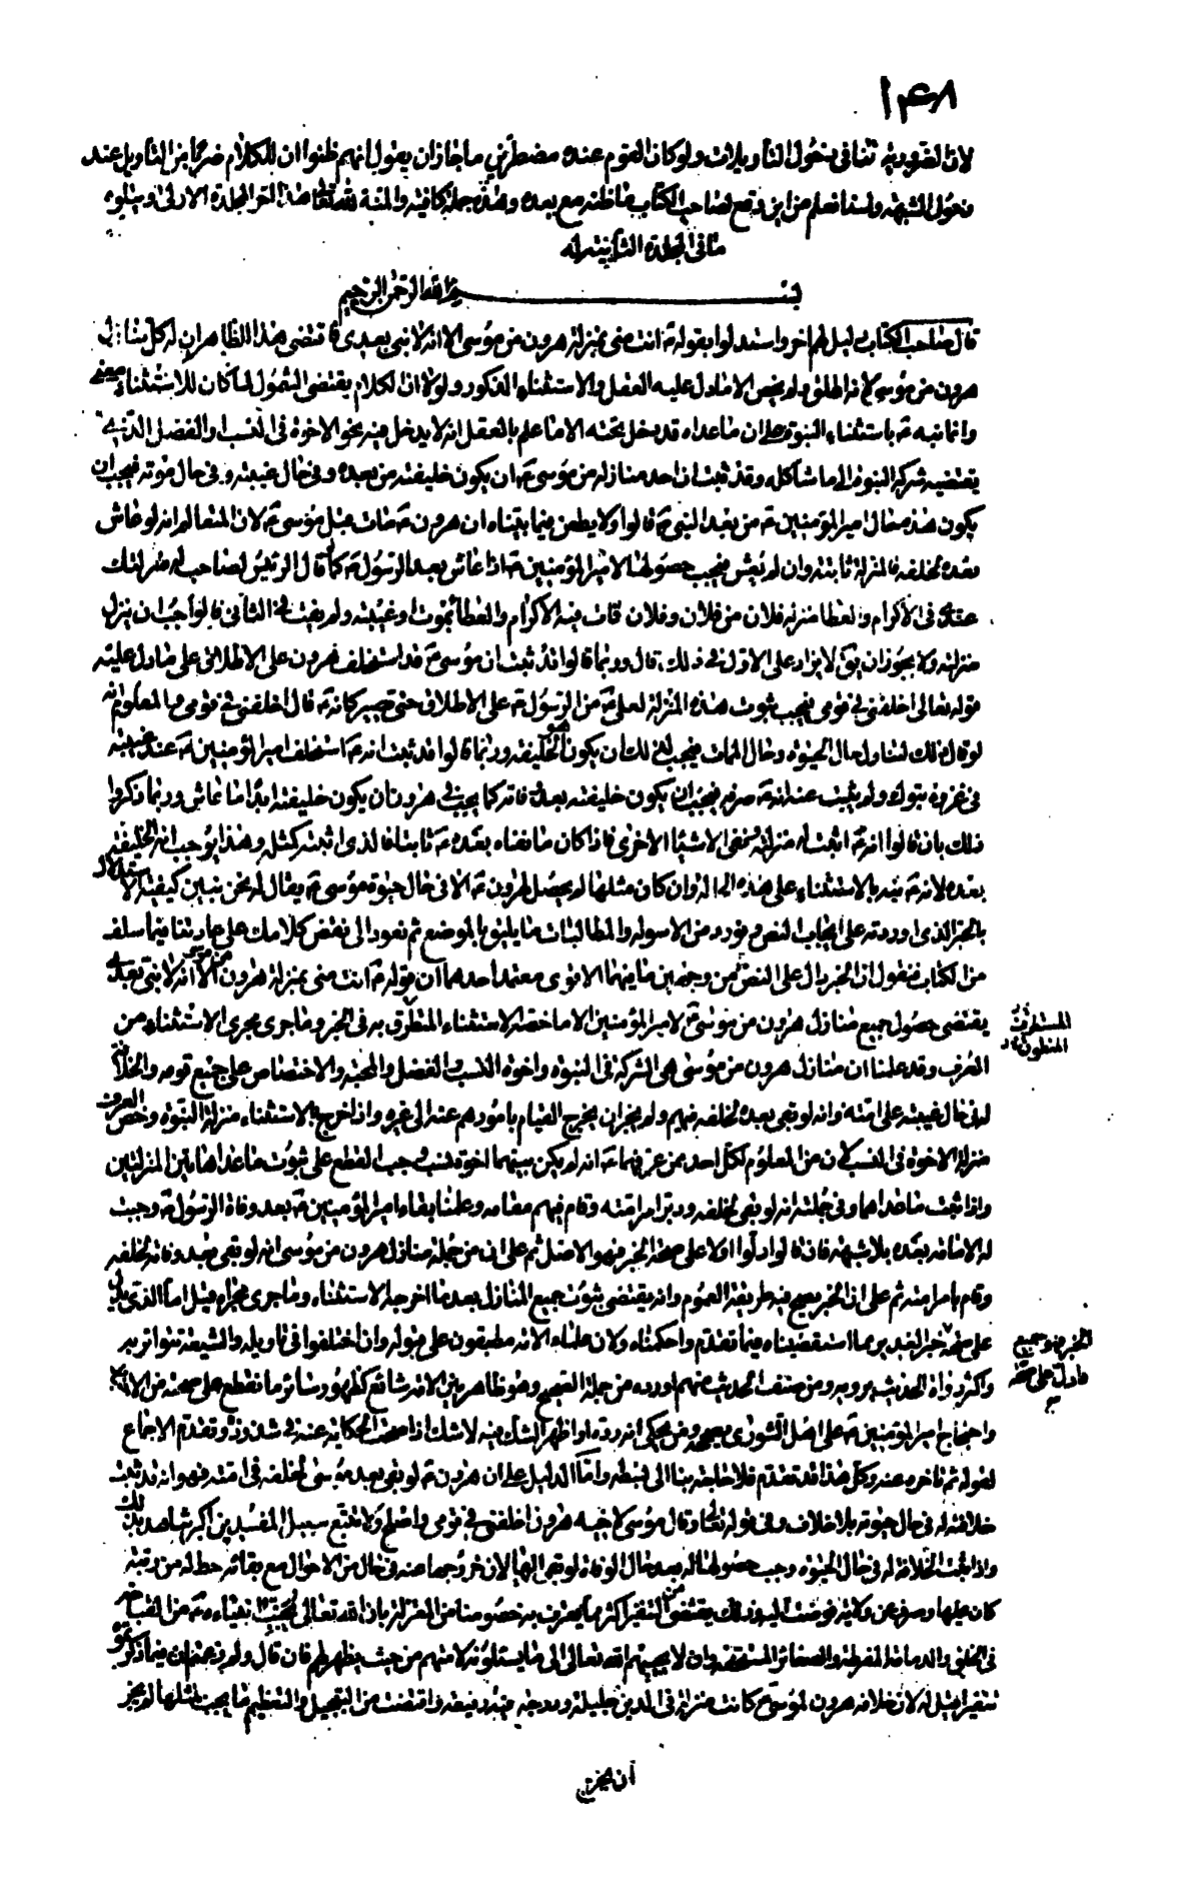 ١٤٨
لان الضرورية تنافى دخول التأويلات ولو كان القوم عنده مضطرين ما جاز ان يقول انهم ظنوا ان للكلام ضربا من التأويل عند
دخول الشبهة ولسنا نعلم من اين وقع لصاحب الكتاب ما ظنه مع بعده وهذه جملة كافية والمنة لله تعالى هذا آخر المجلدة الاولى ويتلوه
ما فى المجلدة الثانية له
بسم الله الرحمن الرحيم
قال صاحب الكتاب دليل لهم اخر واستدلوا بقوله ع انت منى بمنزلة هرون من موسى الا انه لا نبى بعدى فاقتضى هذا الظاهر ان له كل منازل
هرون من موسى لانه اطلق ولم يخص الا ما دل عليه العقل والاستثناء المذكور ولولا ان الكلام يقتضى الشمول لما كان للاستثناء معنى
وانما نبه ع باستثناء النبوة على ان ما عداه قد دخل تحته الا ما علم بالعقل انه لا يدخل فيه نحو الاخوة فى النسب او الفضل الذى
يقتضيه شركة النبوة الى ما شاكله وقد ثبت ان احد منازله من موسى ع ان يكون خليفته من بعده وفى حال غيبته وفى حال موته فيجب ان
يكون هذه حال امير المؤمنين ع من بعد النبى ع قالوا ولا يطعن فيما بيناه ان هرون ع مات قبل موسى ع لان المتعالم انه لو عاش
بعده لخلفه فالمنزلة ثابتة وان لم يعش فيجب حصولها لامير المؤمنين ع اذا عاش بعد الرسول ع كما لو قال الرئيس لصاحب له منزلتك
عندى فى الاكرام والعطا منزلة فلان من فلان وفلان فات فيه الاكرام والعطا بموت او غيبة ولم يفت فى الثانى فالواجب ان ينزل
منزلته ولا يجوز ان يق لا يزاد على الاول فى ذلك، قال وربما قالوا قد ثبت ان موسى ع قد استخلف هرون على الاطلاق على ما دل عليه
قوله تعالى اخلفنى فى قومى فيجب ثبوت هذه المنزلة لعلى ع من الرسول ع على الاطلاق حتى يصير كانه ع قال اخلفنى فى قومى والمعلوم انه
لو قال ذلك لتناول حال الحيوة وحال الممات فيجب لذلك ان يكون هو الخليفة وربما قالوا قد ثبت انه ع استخلف امير المؤمنين ع عند غيبته
فى غزوة تبوك ولم يثبت عنه انه ع صرفه فيجب ان يكون خليفته بعد وفاته كما يجب فى هرون ان يكون خليفته ابدا ما عاش وربما ذكروا
ذلك بان قالوا انه ع اثبت له منزلة ونفى الاستثنا الاخرى فاذا كان ما نفاه بعده ع ثابتا فالذى اثبته كمثل وهذا يوجب انه الخليفة
بعده لانه ع نبه بالاستثناء على هذه الحالة وان كان مثلها لم يحصل لهرون ع الا فى حال حيوة موسى ع يقال له نحن نبين كيفية الاستدلال
بالخبر الذى اوردته على ايجاب النص ونورد من الاسولة والمطالبات ما يليق بالموضع ثم نعود الى نقض كلامك على عادتنا فيما سلف
من الكتاب فنقول ان الخبر دال على النص من وجهين ما فيهما الا قوى معتمد احدهما ان قوله ع انت منى بمنزلة هرون من موسى الا انه لا نبى بعدى
يقتضى حصول جميع منازل هرون من موسى ع لامير المؤمنين الا ما خصه الاستثناء المتطرق به فى الخبر وما جرى مجرى الاستثناء من
العرف وقد علمنا ان منازل هرون من موسى هى الشركة فى النبوة واخوة النسب والفضل والمحبة والاختصاص على جميع قومه والخلافة
له فى حال غيبته على امته وانه لو بقى بعده لخلفه فيهم ولم يجز ان يخرج القيام بامورهم عنه الى غيره واذا خرج بالاستثناء منزلة النبوة وخص العرف
منزلة الاخوة فى النسب لان من المعلوم لكل احد ممن عرفهما ع انه لم يكن بينهما اخوة نسب وجب القطع على ثبوت ما عدا هاتين المنزلتين
واذا ثبت ما عداهما وفى جملته انه لو بقى لخلفه ودبر امر امته وقام فيهم مقامه وعلمنا بقاء امير المؤمنين ع بعد وفاة الرسول ع وجبت
له الامامة بعده بلا شبهة فان قالوا دلوا اولا على صحة الخبر فهو الاصل ثم على ان من جملة منازل هرون من موسى انه لو بقى بعد وفاته لخلفه
وقام بامر امته ثم على ان الخبر يصح فيه طريقة العموم وانه يقتضى ثبوت جميع المنازل بعد ما اخرجه الاستثناء وما جرى مجراه قيل اما الذى يدل
على صحة خبر الغدير مما استقصيناه فيما تقدم واحكمناه ولان علماء الامة مطبقون على قبوله وان اختلفوا فى تأويله والشيعة تتواتر به
واكثر رواة الحديث يرويه ومن صنف الحديث منهم اورده من جملة الصحيح وهو ظاهر بين الامة شائع كظهور سائر ما نقطع على صحته من الاخبار
واحتجاج امير المؤمنين ع على اهل الشورى يصححه ومن يحكى انه رده او اظهر الشك فيه لا شك اذا صحت الحكاية عنه فى شذوذه وتقدم الاجماع
لقوله ثم تاخره عنه وكل هذا قد تقدم فلا حاجة بنا الى بسطه واما الدليل على ان هرون ع لو بقى بعد موسى لخلفه فى امته فهو انه قد ثبت
خلافته له فى حال حيوته بلا خلاف وفى قوله تعالى وقال موسى لاخيه هرون اخلفنى فى قومى واصلح ولا تتبع سبيل المفسدين اكبر شاهد بذلك
واذا ثبت الخلافة له فى حال الحيوة وجب حصولها له بعد حال الوفاة لو بقى اليها لان خروجها عنه فى حال من الاحوال مع بقائه حط له من رتبة
كان عليها وصرف عن ولاية فوضت اليه وذلك يقتضى من التنفير اكثر مما يعترف به خصومنا من المعتزلة بان الله تعالى يجنب انبياءه ع من القباحة
فى الخلق والدمامة المفرطة والصغائر المستخفة وان لا يجيبهم الله تعالى الى ما يسئلونه لامتهم من حيث يظهر لهم فان قال ولم زعمتم ان فيما ذكرتموه
تنفيرا قيل له لان خلافة هرون لموسى ع كانت منزلة فى الدين جليلة ودرجة فيه رفيعة واقتضت من التبجيل والتعظيم ما يجب لمثلها لم يجز
المستطرق
المنطوق
الخبر فهو جميع
ما دل على صحة
ان يخرج